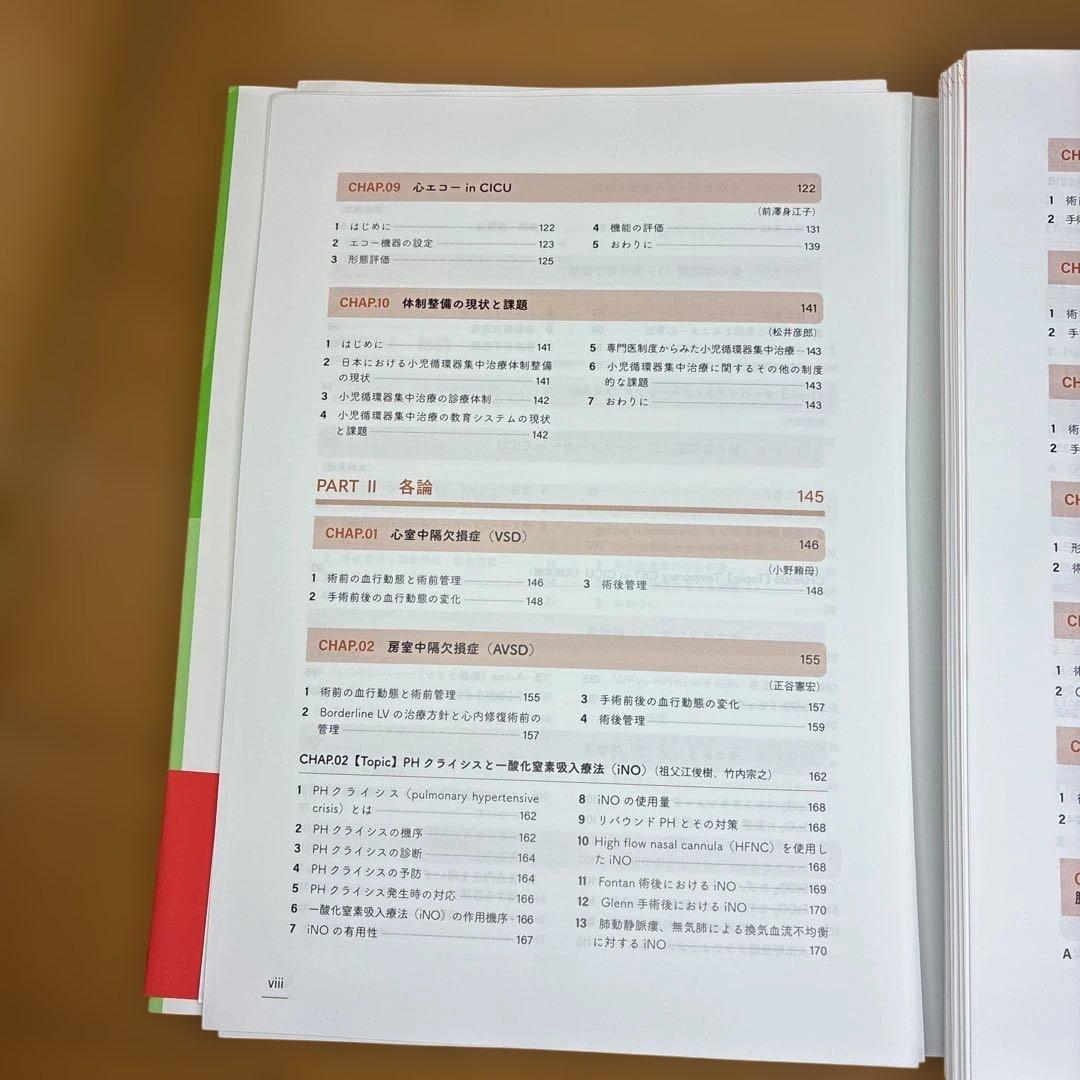 CHAP.09 心エコー in CICU 122
（前澤身江子）
1 はじめに 122
2 エコー機器の設定 123
3 形態評価 125
4 機能の評価 131
5 おわりに 139
CHAP.10 体制整備の現状と課題 141
（松井彦郎）
1 はじめに 141
2 日本における小児循環器集中治療体制整備
の現状 141
3 小児循環器集中治療の診療体制 142
4 小児循環器集中治療の教育システムの現状
と課題 142
5 専門医制度からみた小児循環器集中治療 143
6 小児循環器集中治療に関するその他の制度
的な課題 143
7 おわりに 143
PART II 各論 145
CHAP.01 心室中隔欠損症（VSD） 146
（小野頼母）
1 術前の血行動態と術前管理 146
2 手術前後の血行動態の変化 148
3 術後管理 148
CHAP.02 房室中隔欠損症（AVSD） 155
（正谷憲宏）
1 術前の血行動態と術前管理 155
2 Borderline LV の治療方針と心内修復術前の
管理 157
3 手術前後の血行動態の変化 157
4 術後管理 159
CHAP.02【Topic】PH クライシスと一酸化窒素吸入療法（iNO）（祖父江俊樹、竹内宗之） 162
1 PH クライシス（pulmonary hypertensive
crisis）とは 162
2 PH クライシスの機序 162
3 PH クライシスの診断 164
4 PH クライシスの予防 164
5 PH クライシス発生時の対応 166
6 一酸化窒素吸入療法（iNO）の作用機序 166
7 iNO の有用性 167
8 iNO の使用量 168
9 リバウンド PH とその対策 168
10 High flow nasal cannula（HFNC）を使用し
た iNO 168
11 Fontan 術後における iNO 169
12 Glenn 手術後における iNO 170
13 肺動静脈瘻、無気肺による換気血流不均衡
に対する iNO 170
viii